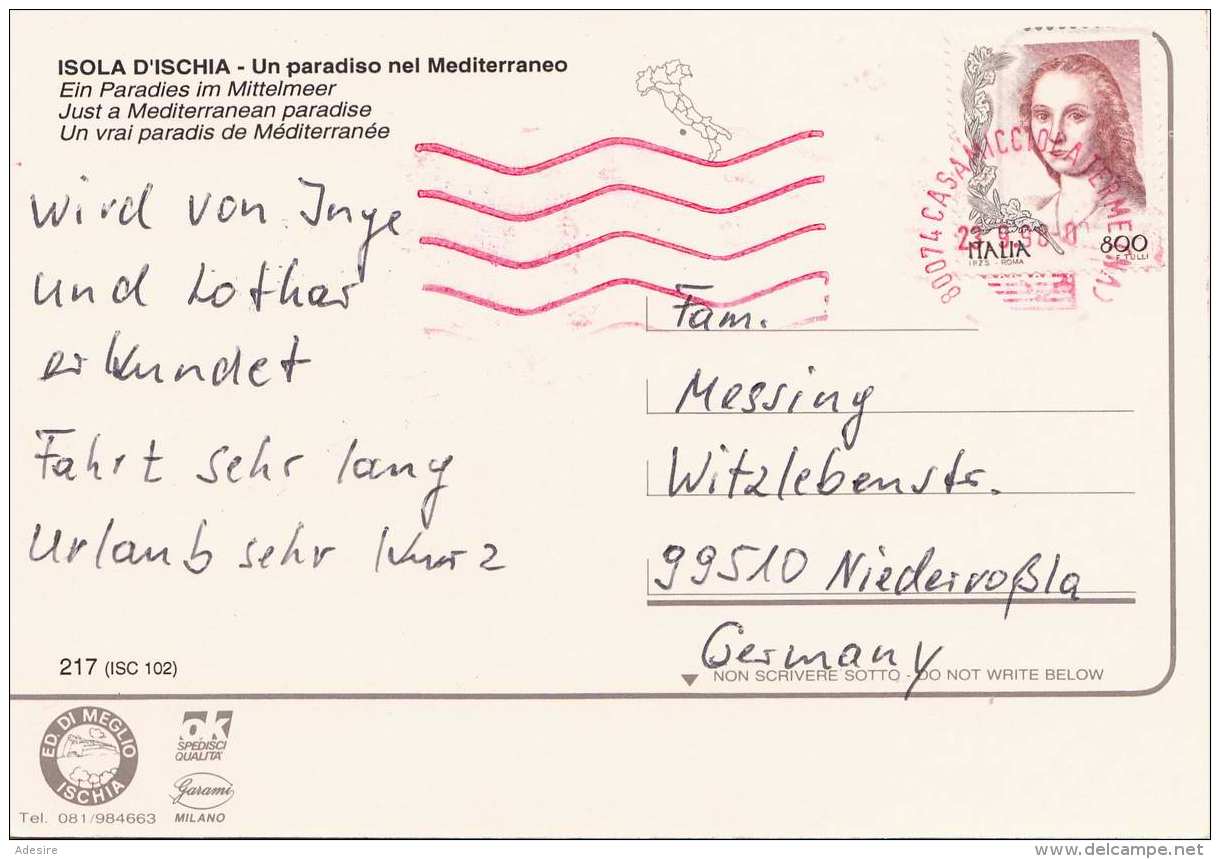 ISOLA D'ISCHIA - Un paradiso nel Mediterraneo
Ein Paradies im Mittelmeer
Just a Mediterranean paradise
Un vrai paradis de Méditerranée
wird von Inge
und Lothar
erkundet
Fahrt sehr lang
Urlaub sehr kurz
217 (ISC 102)
80074 CASAMICCIOLA TERME
ITALIA
800
I.P.Z.S. - ROMA
F. TULLI
Fam.
Messing
Witzlebenstr.
99510 Niederroßla
Germany
NON SCRIVERE SOTTO - DO NOT WRITE BELOW
ED. DI MEGLIO
ISCHIA
Tel. 081/984663
ok
SPEDISCI
QUALITA'
Garami
MILANO
Adesire
www.delcampe.net